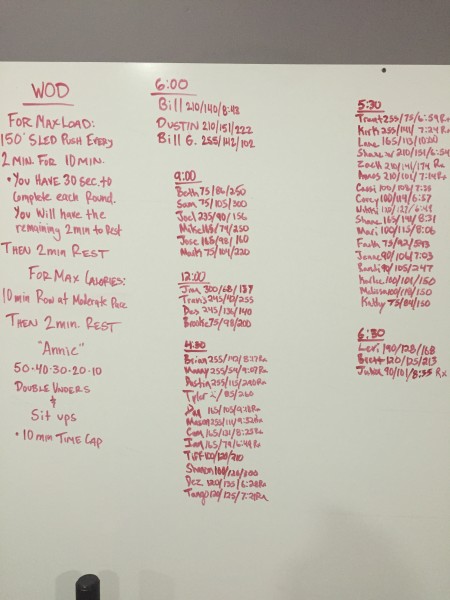 WOD
FOR MAX LOAD:
150' SLED PUSH EVERY
2 MIN. FOR 10 MIN.
• YOU HAVE 30 SEC. TO
Complete each Round.
You Will Have the
remaining 2 min to Rest
THEN 2 MIN REST
FOR MAX CALORIES:
10 min Row at Moderate Pace
THEN 2 min. REST
"Annie"
50-40-30-20-10
DOUBLE UNDERS
&
Sit ups
• 10 min TIME CAP
6:00
Bill 210/140/8:48
DUSTIN 210/151/222
Bill G. 255/142/102
9:00
Beth 75/86/250
Sam 75/105/300
Joel 235/90/156
Mike 165/74/250
Jose 165/98/160
Mark 75/104/220
12:00
Jim 300/68/137
Travis 245/47/255
Des 245/136/140
Brooke 75/98/200
4:30
Brian 255/142/8:27 Rx
Manny 255/114/9:09 Rx
Austin 255/115/290 Rx
Tyler /85/260
165/105/9:18 Rx
Mason 255/111/9:52 Rx
Cam 165/121/8:23 Rx
Ian 165/79/6:49 Rx
Tiff 100/120/210
Sharon 100/126/300
Dez 120/135/6:28 Rx
Tango 120/125/7:21 Rx
5:30
Trent 255/75/6:59 Rx
Kirk 255/141/7:24 Rx
Lane 165/113/10:00
Shane 210/151/6:54
Zach 210/141/174 Rx
Amos 210/101/7:14 Rx
Cassi 100/106/7:35
Corey 100/114/6:57
120/127/6:48
Shane 165/141/8:31
Mari 100/113/8:06
Faith 75/92/543
Jenne 90/106/7:03
90/105/247
Karlie 100/101/150
Melissa 100/118/150
Kathy 75/84/150
6:30
Levi 190/128/168
Brett 120/125/213
Julia 90/101/8:35 Rx